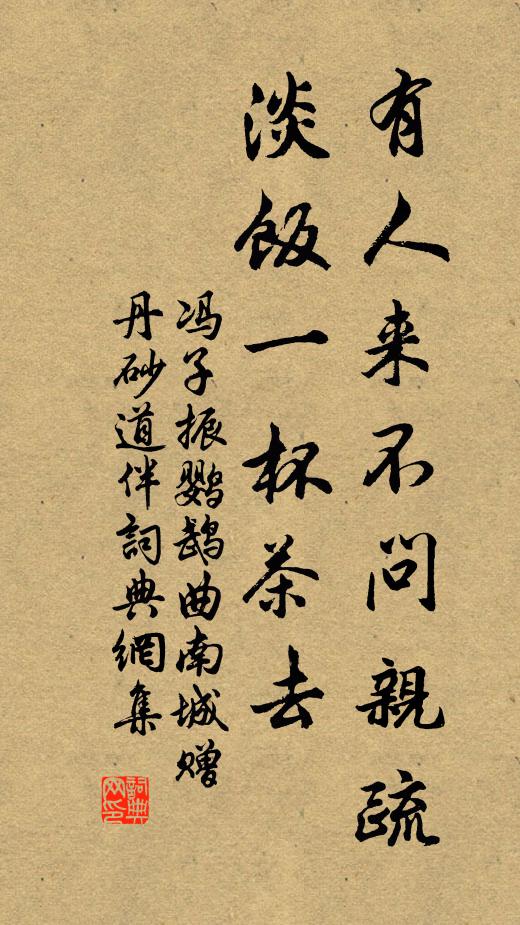 有人来不問親疏
淡飯一杯茶去
冯子振鹦鵡曲南城赠
丹砂道伴詞典網集
詞典网印